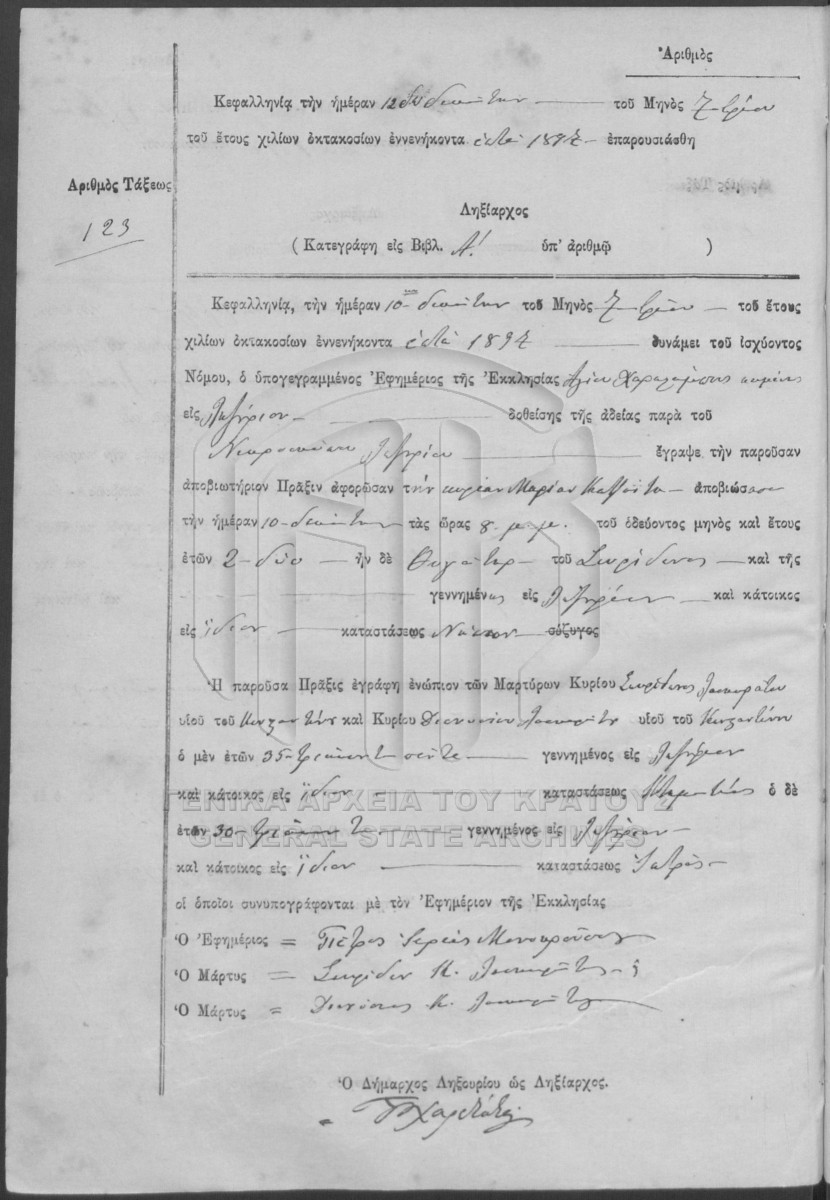 Ἀριθμὸς
Κεφαλληνίᾳ τὴν ἡμέραν 12 δωδεκάτην τοῦ Μηνὸς 7βρίου
τοῦ ἔτους χιλίων ὀκτακοσίων ἐννενήκοντα ἑπτὰ 1897 ἐπαρουσιάσθη
Ἀριθμὸς Τάξεως
123
Ληξίαρχος
( Κατεγράφη εἰς Βιβλ. Α! ὑπ' ἀριθμῷ )
Κεφαλληνίᾳ, τὴν ἡμέραν 10 δεκάτην τοῦ Μηνὸς 7βρίου τοῦ ἔτους
χιλίων ὀκτακοσίων ἐννενήκοντα ἑπτὰ 1897 δυνάμει τοῦ ἰσχύοντος
Νόμου, ὁ ὑπογεγραμμένος Ἐφημέριος τῆς Ἐκκλησίας Ἁγίου Χαραλάμπους κειμένης
εἰς Ληξούριον δοθείσης τῆς ἀδείας παρὰ τοῦ
Ληξουρίου ἔγραψε τὴν παροῦσαν
ἀποβιωτήριον Πρᾶξιν ἀφορῶσαν τὴν κυρίαν Μαρίαν ἀποβιώσασαν
τὴν ἡμέραν 10 δεκάτην τὰς ὥρας 8 μ.μ. τοῦ ὁδεύοντος μηνὸς καὶ ἔτους
ἐτῶν 2 δύο ἦν δὲ θυγάτηρ τοῦ Σπυρίδωνος καὶ τῆς
γεννημένος εἰς Ληξούριον καὶ κάτοικος
εἰς ἴδιον καταστάσεως Νήπιον σύζυγος
Ἡ παροῦσα Πρᾶξις ἐγράφη ἐνώπιον τῶν Μαρτύρων Κυρίου Σπυρίδωνος
υἱοῦ τοῦ Κωνσταντίνου καὶ Κυρίου Διονυσίου υἱοῦ τοῦ Κωνσταντίνου
ὁ μὲν ἐτῶν 35 τριάκοντα πέντε γεννημένος εἰς Ληξούριον
καὶ κάτοικος εἰς ἴδιον καταστάσεως ὁ δὲ
ἐτῶν 30 τριάκοντα γεννημένος εἰς Ληξούριον
καὶ κάτοικος εἰς ἴδιον καταστάσεως Ἰατρὸς
οἱ ὁποῖοι συνυπογράφονται μὲ τὸν Ἐφημέριον τῆς Ἐκκλησίας
Ὁ Ἐφημέριος = Πέτρος Ἱερεὺς
Ὁ Μάρτυς = Σπυρίδων Κ.
Ὁ Μάρτυς = Διονύσιος Κ.
Ὁ Δήμαρχος Ληξουρίου ὡς Ληξίαρχος.
ΓΕΝΙΚΑ ΑΡΧΕΙΑ ΤΟΥ ΚΡΑΤΟΥΣ
GENERAL STATE ARCHIVES